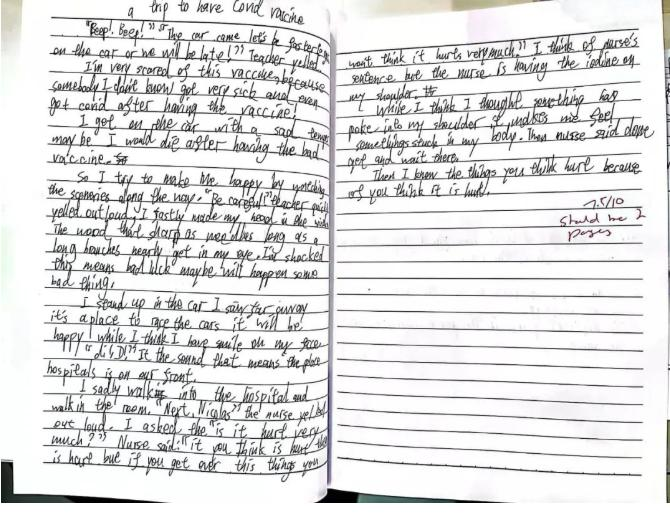 a trip to have Covid vaccine
"Beep! Beep!" "The car came let's be faster to go
on the car or we will be late!" Teacher yelled
I'm very scared of this vaccine, because
somebody I don't know got very sick and even
got covid after having the vaccine!
I got on the car with a sad
may be I would die after having the bad
vaccine.
So I try to make me happy by watching
the sceneries along the way. "Be careful" teacher quickly
yelled out loud, I fastly made my head in the
The wood that sharp as needles long as a
long branches nearly get in my eye. I'm shocked
this means bad luck maybe will happen some
bad thing.
I stand up in the car I saw far away
it's a place to race the cars it will be
happy! while I think I have smile on my face
It the sound that means the place
hospitals is on our front.
I sadly walk into the hospital and
walk in the room. "Next, Nicolas" the nurse yelled
out loud. I asked the "is it hurt very
much?" Nurse said: "it you think is hurt
is hurt but if you get over this things you
won't think it hurts very much." I think of nurse's
sentence but the nurse is having the iodine on
my shoulder.
While I think I thought something has
poke into my shoulder it makes me feel
somethings stuck in my body. Then nurse said done
get and wait there.
Then I know the things you think hurt because
of you think it is hurt.
7.5/10
should be 2
pages